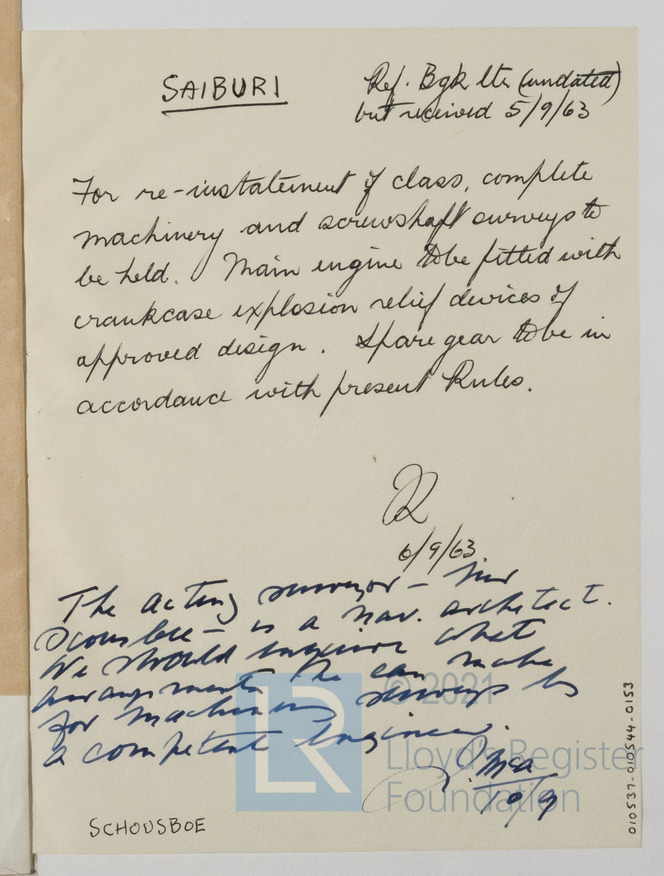 SAIBURI
Ref. Bgk ltr (undated)
but received 5/9/63
For re-instatement of class, complete
machinery and screwshaft surveys to
be held. Main engine to be fitted with
crankcase explosion relief devices of
approved design. Spare gear to be in
accordance with present Rules.
6/9/63
The acting surveyor – Mr
– is a nav. architect.
We should enquire what
arrangements he can make
for machinery surveys by
a competent engineer.
10/9
SCHOUSBOE
© 2021
LR
Lloyd's Register
Foundation
010537-010544-0153